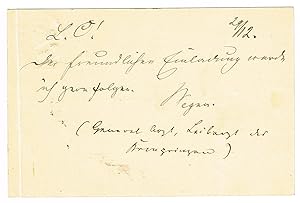 29/12.
L. C!
Der freundlichen Einladung werde
ich gern folgen.
Wegner.
(General Arzt, Leibarzt des
Kronprinzen)